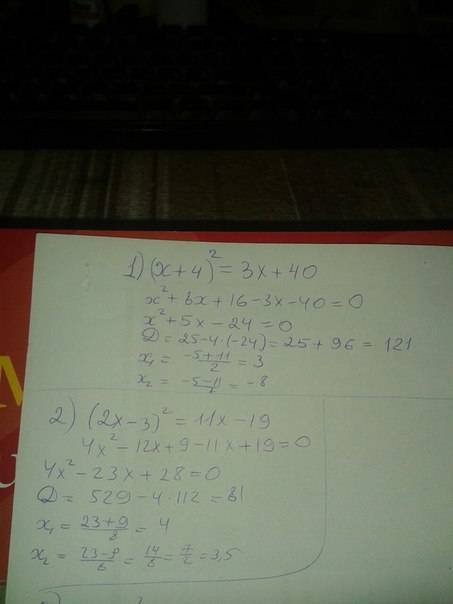 1) (x+4)² = 3x+40
x²+8x+16-3x-40=0
x²+5x-24=0
D=25-4·(-24)=25+96=121
x₁= (-5+11)/2 = 3
x₂= (-5-11)/2 = -8
2) (2x-3)² = 11x-19
4x²-12x+9-11x+19=0
4x²-23x+28=0
D= 529-4·112=81
x₁= (23+9)/8 = 4
x₂= (23-9)/8 = 14/8 = 7/2 = 3,5